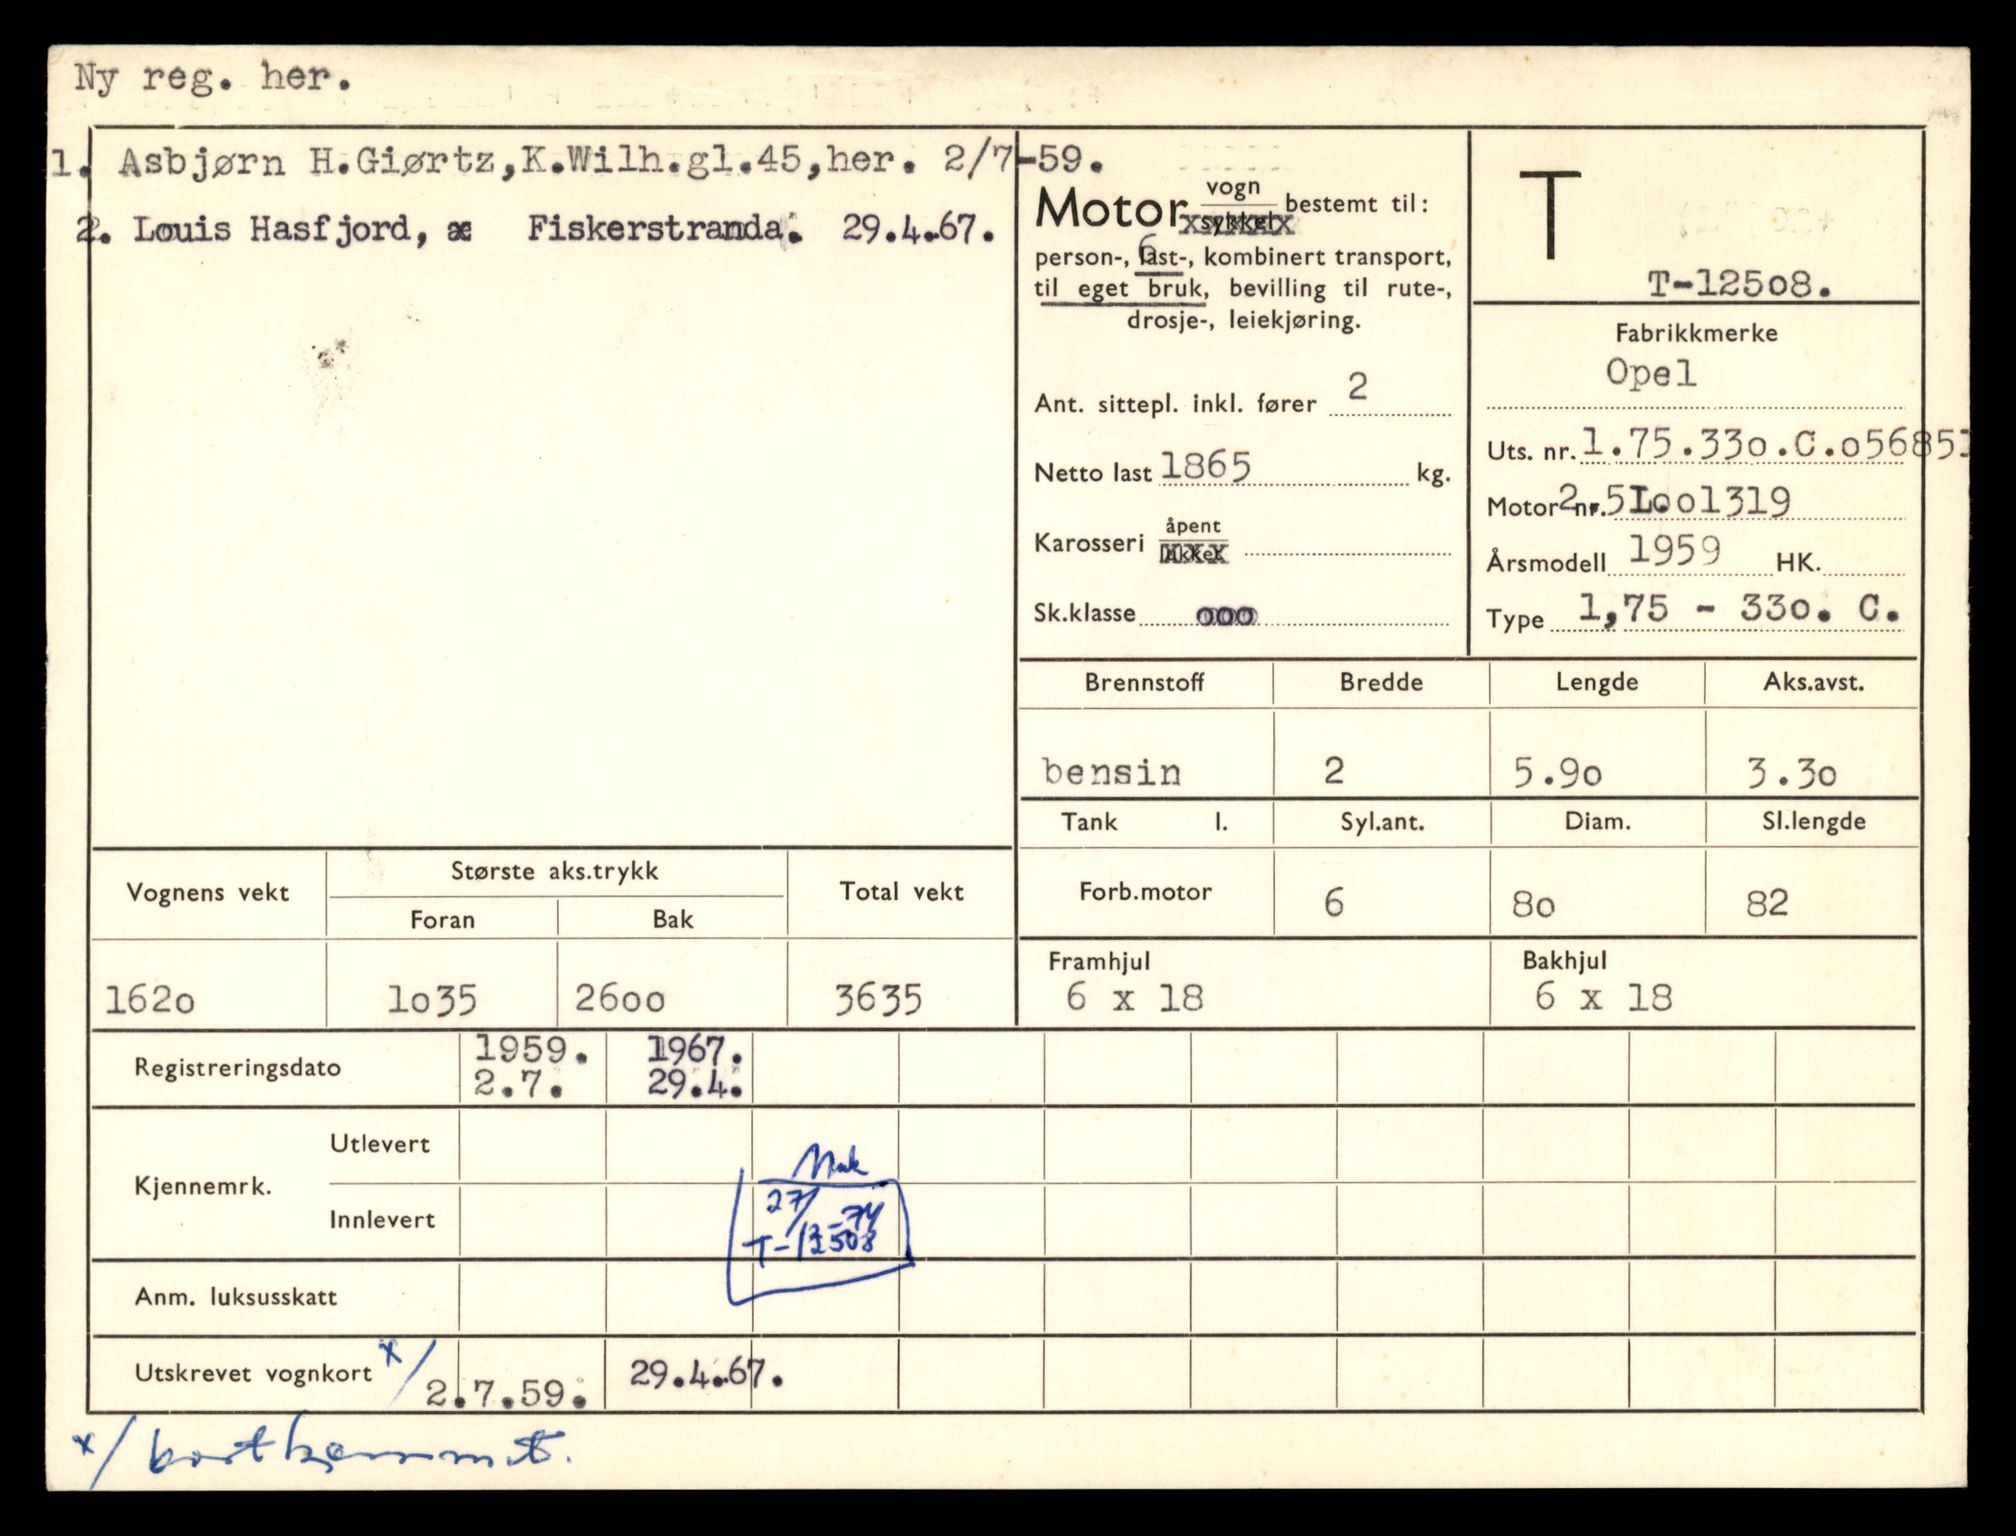 Ny reg. her.
1. Asbjørn H.Giørtz,K.Wilh.gl.45,her. 2/7-59.
2. Louis Hasfjord, æ Fiskerstranda. 29.4.67.
Motor vogn sykkel bestemt til:
person-, last-, kombinert transport,
6
til eget bruk, bevilling til rute-,
drosje-, leiekjøring.
Ant. sittepl. inkl. fører 2
Netto last 1865 kg.
Karosseri åpent lukket
Sk.klasse ooo
T
T-12508.
Fabrikkmerke
Opel
Uts. nr. 1.75.33o.C.o56851
Motor nr. 2.5L.oo1319
Årsmodell 1959 HK.
Type 1,75 - 33o. C.
Brennstoff Bredde Lengde Aks.avst.
bensin 2 5.9o 3.3o
Tank l. Syl.ant. Diam. Sl.lengde
Forb.motor 6 8o 82
Framhjul Bakhjul
6 x 18 6 x 18
Vognens vekt Største aks.trykk Total vekt
Foran Bak
162o 1o35 26oo 3635
Registreringsdato 1959. 1967.
2.7. 29.4.
Kjennemrk.
Utlevert
Innlevert
27/ -74
T-12508
Anm. luksusskatt
Utskrevet vognkort x/ 2.7.59. 29.4.67.
x/ bortkommet.